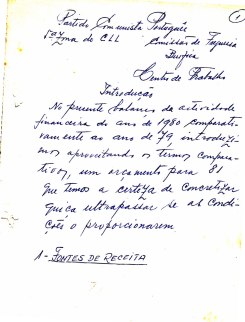 1
Partido Comunista Português
1ª Zona de CLL Comissão de Freguesia
Benfica
Centro de Trabalho
Introdução
No presente balanço da actividade
financeira do ano de 1980 comparati-
vamente ao ano de 79 introduzi-
mos aproveitando os termos compara-
tivos, um orçamento para 81
que temos a certeza de concretizar
e ultrapassar se as condi-
ções o proporcionarem
1 - FONTES DE RECEITA